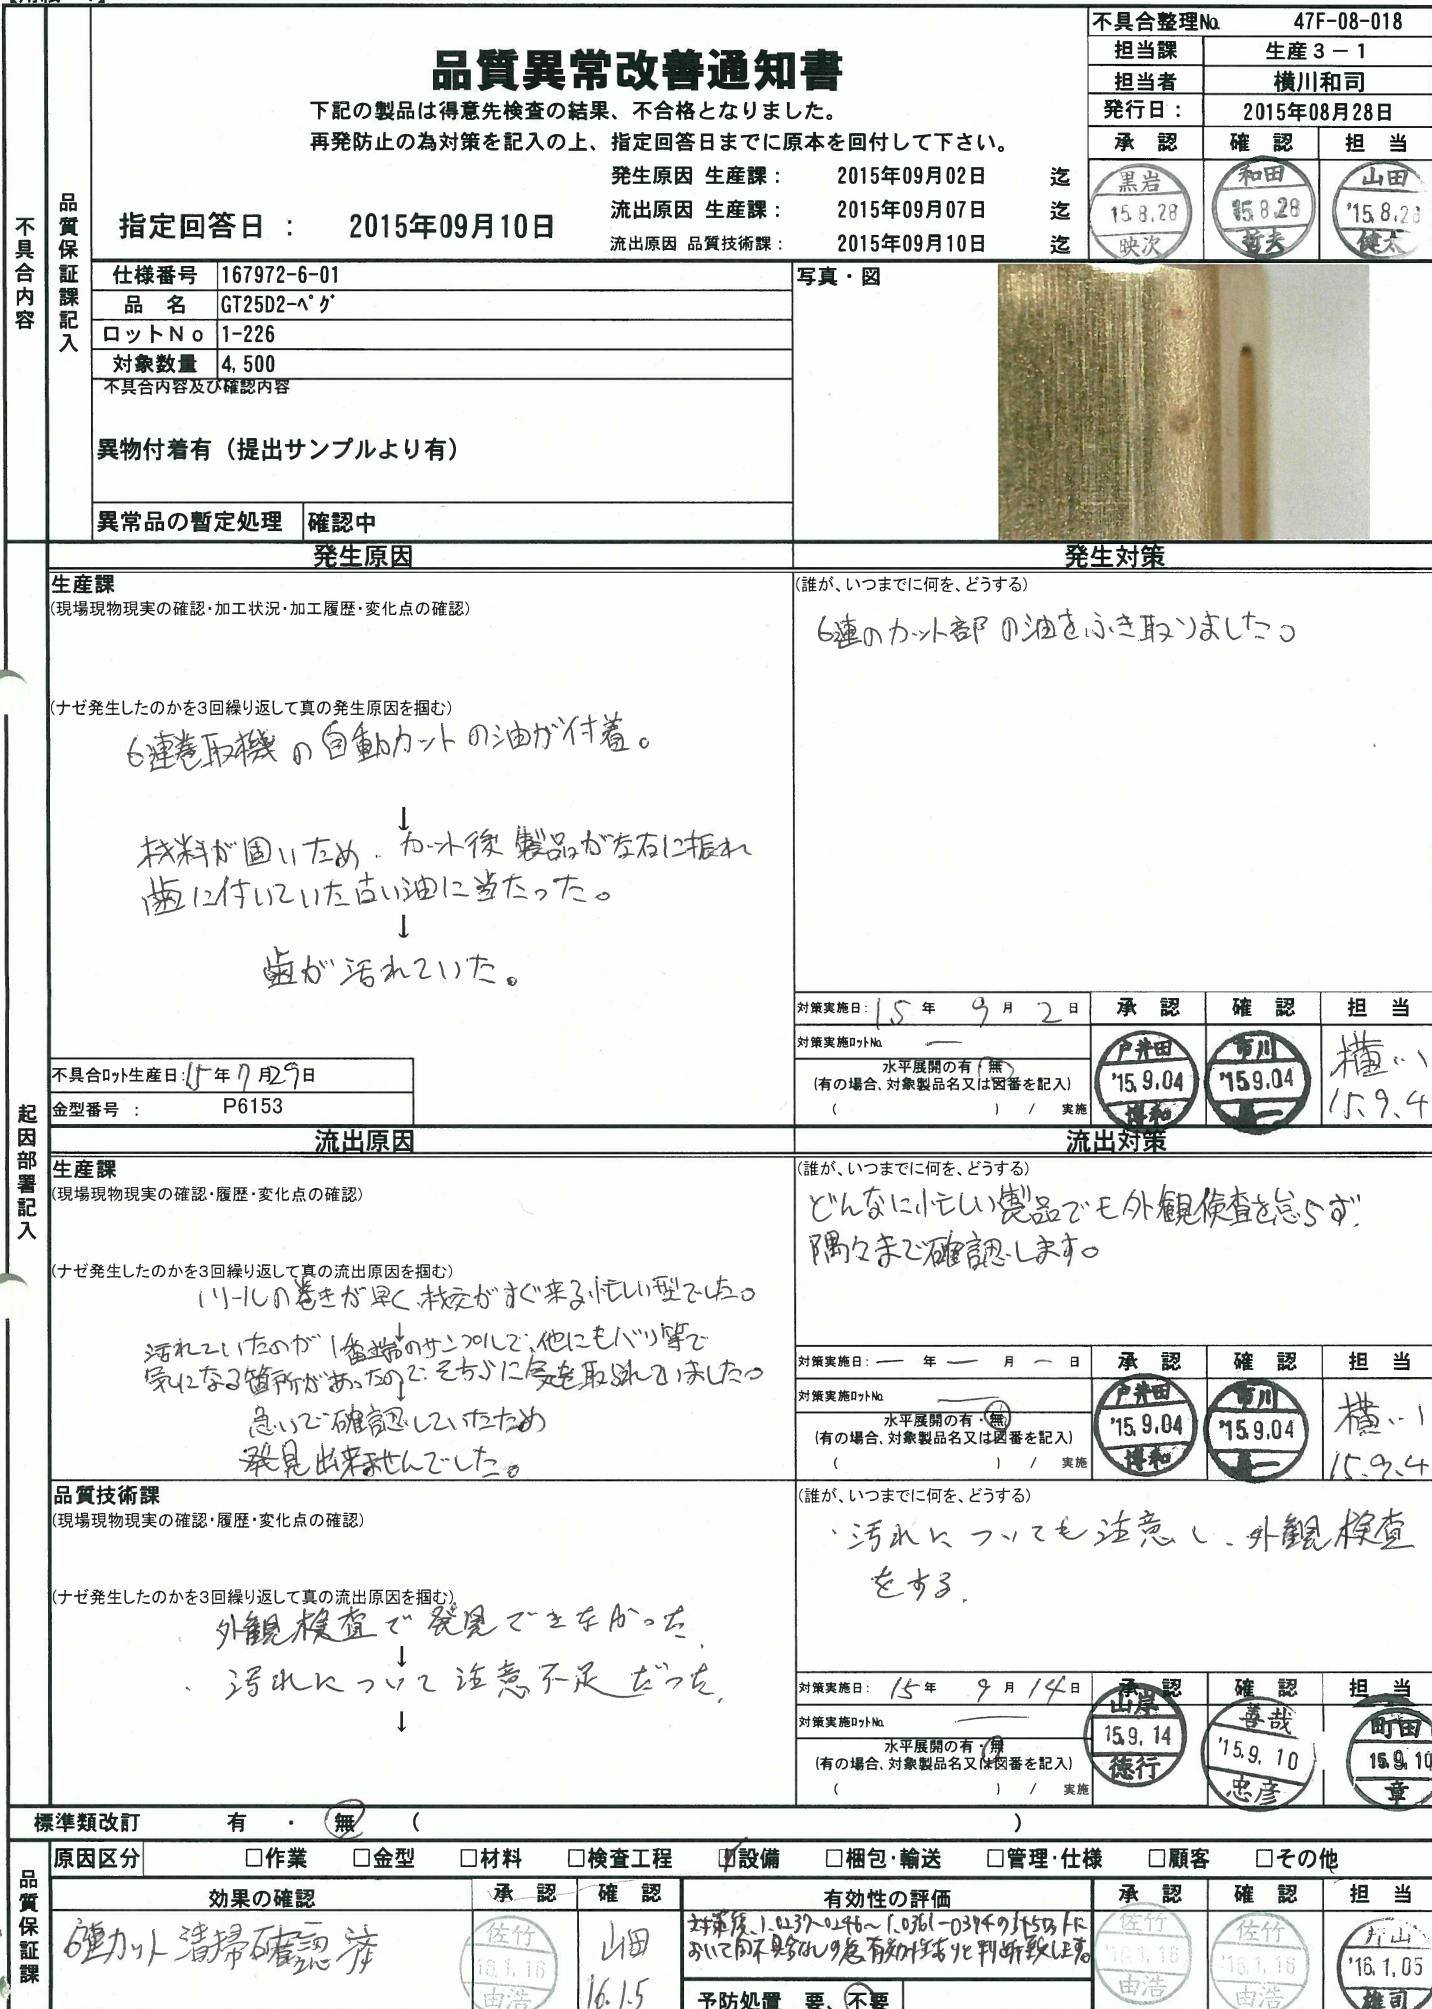 不具合整理No. 47F-08-018
担当課 生産３－１
担当者 横川和司
発行日： 2015年08月28日
承認 確認 担当
黒岩 15.8.28 映次
和田 '15.8.28 哲夫
山田 '15.8.28 健太
品質異常改善通知書
下記の製品は得意先検査の結果、不合格となりました。
再発防止の為対策を記入の上、指定回答日までに原本を回付して下さい。
発生原因 生産課： 2015年09月02日 迄
流出原因 生産課： 2015年09月07日 迄
流出原因 品質技術課： 2015年09月10日 迄
指定回答日 ： 2015年09月10日
不具合内容
品質保証課記入
仕様番号 167972-6-01
品名 GT25D2-ﾍﾟｸﾞ
ロットＮｏ 1-226
対象数量 4,500
不具合内容及び確認内容
異物付着有（提出サンプルより有）
異常品の暫定処理 確認中
写真・図
起因部署記入
発生原因
生産課
(現場現物現実の確認・加工状況・加工履歴・変化点の確認)
(ナゼ発生したのかを3回繰り返して真の発生原因を掴む)
6連巻取機の自動カットの油が付着。
↓
材料が固いため、カット後製品が左右に振れ
歯に付いていた古い油に当たった。
↓
歯が汚れていた。
不具合ﾛｯﾄ生産日：15年7月29日
金型番号 ： P6153
発生対策
(誰が、いつまでに何を、どうする)
6連のカット部の油をふき取りました。
対策実施日： 15年 9月 2日
対策実施ﾛｯﾄNo. ―
水平展開の有・無
(有の場合、対象製品名又は図番を記入)
( ) / 実施
承認 確認 担当
戸井田 '15.9.04 博和
市川 '15.9.04
横川 15.9.4
流出原因
生産課
(現場現物現実の確認・履歴・変化点の確認)
(ナゼ発生したのかを3回繰り返して真の流出原因を掴む)
リールの巻きが早く、材交がすぐ来る忙しい型でした。
↓
汚れていたのが1番端のサンプルで、他にもバリ等で
気になる箇所があったので、そちらに気を取られていました。
↓
急いで確認していたため
発見出来ませんでした。
流出対策
(誰が、いつまでに何を、どうする)
どんなに忙しい製品でも外観検査を怠らず、
隅々まで確認します。
対策実施日： ― 年 ― 月 ― 日
対策実施ﾛｯﾄNo. ―
水平展開の有・無
(有の場合、対象製品名又は図番を記入)
( ) / 実施
承認 確認 担当
戸井田 '15.9.04 博和
市川 '15.9.04
横川 15.9.4
品質技術課
(現場現物現実の確認・履歴・変化点の確認)
(ナゼ発生したのかを3回繰り返して真の流出原因を掴む)
外観検査で発見できなかった。
↓
・汚れについて注意不足だった。
↓
(誰が、いつまでに何を、どうする)
・汚れについても注意し、外観検査
をする。
対策実施日： 15年 9月 14日
対策実施ﾛｯﾄNo. ―
水平展開の有・無
(有の場合、対象製品名又は図番を記入)
( ) / 実施
承認 確認 担当
山岸 15.9.14 徳行
善哉 '15.9.10 忠彦
町田 15.9.10 章
標準類改訂 有 ・ 無 ( )
品質保証課
原因区分 □作業 □金型 □材料 □検査工程 ☑設備 □梱包・輸送 □管理・仕様 □顧客 □その他
効果の確認 承認 確認
6連カット清掃確認済
佐竹 '16.1.16 由浩
山田 16.1.5
有効性の評価
対策後、1.0237~0246~1.0361-0394の計5ロットに
おいて同不具合なしの為有効性ありと判断致します。
予防処置 要、不要
承認 確認 担当
佐竹 '16.1.16 由浩
佐竹 '16.1.16 由浩
'16.1.05 雄司